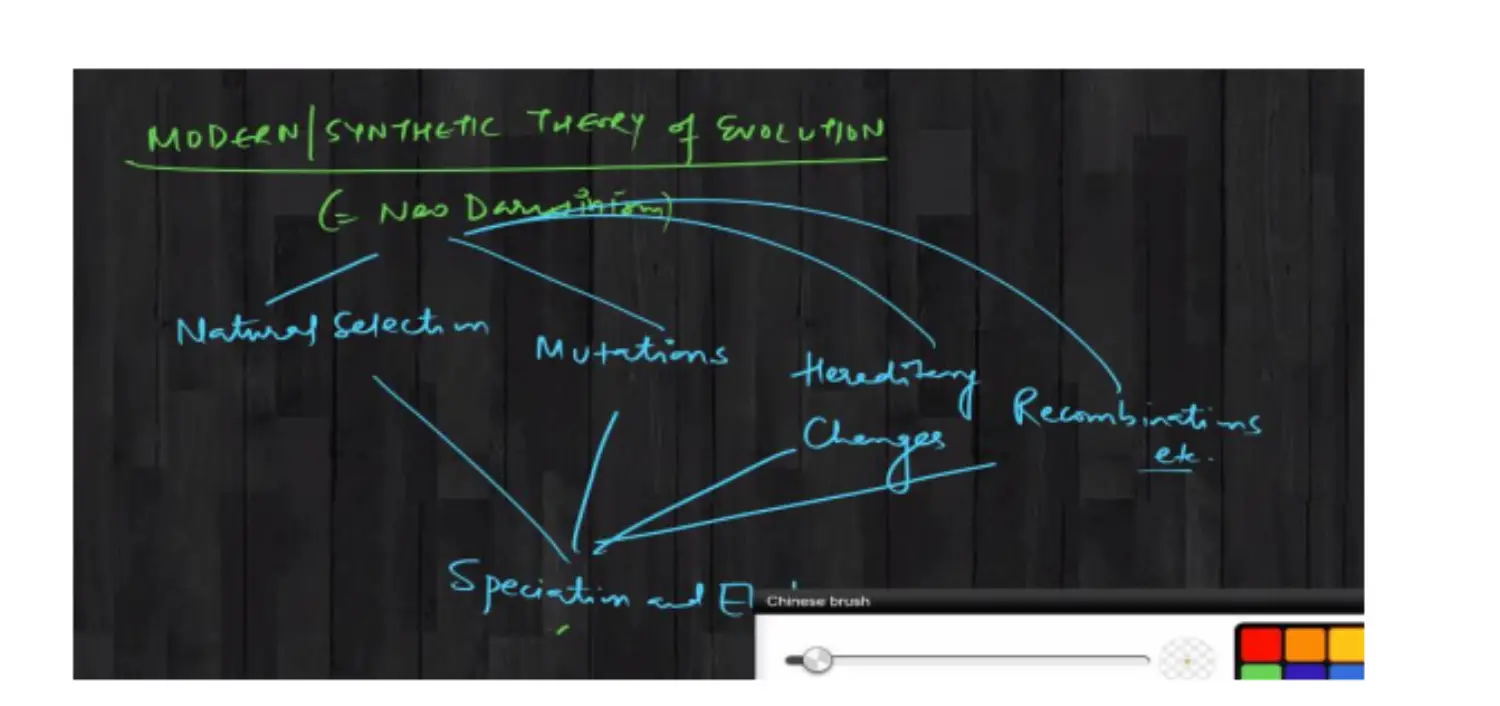 MODERN/SYNTHETIC THEORY of EVOLUTION
(= Neo Darwinism)
Natural Selection
Mutations
Hereditary
Changes
Recombinations
etc.
Speciation and
Chinese brush